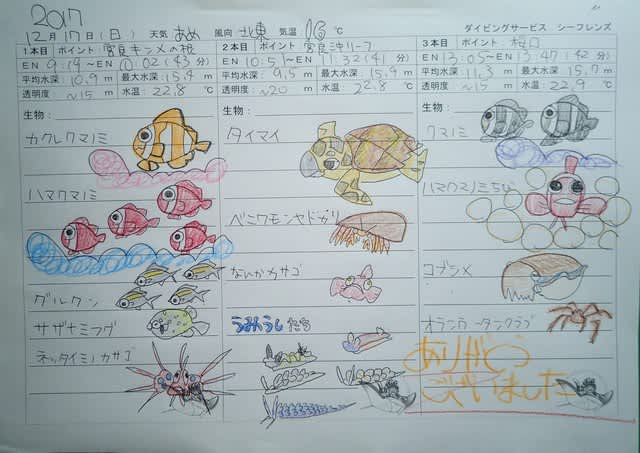 2017
12月17日(日) 天気 あめ 風向 北東 気温 16 ℃ ダイビングサービス シーフレンズ
1本目 ポイント 宮良キンメの根
EN 9:19~EN 10:02(43分)
平均水深: 10.9 m 最大水深: 15.4 m
透明度: ~15 m 水温: 22.8 ℃
生物:
カクレクマノミ
ハマクマノミ
グルクン
サザナミフグ
ネッタイミノカサゴ
2本目 ポイント 宮良沖リーフ
EN 10:51~EN 11:32(41分)
平均水深: 9.5 m 最大水深: 15.9 m
透明度: ~20 m 水温: 22.8 ℃
生物:
タイマイ
ベニワモンヤドカリ
なんかカサゴ
うみうしたち
3本目 ポイント 桜口
EN 13:05~EN 13:47(42分)
平均水深: 11.3 m 最大水深: 15.7 m
透明度: ~15 m 水温: 22.9 ℃
生物:
クマノミ
ハマクマノミちび
コブシメ
オランウータンクラブ
ありがとう
ございました